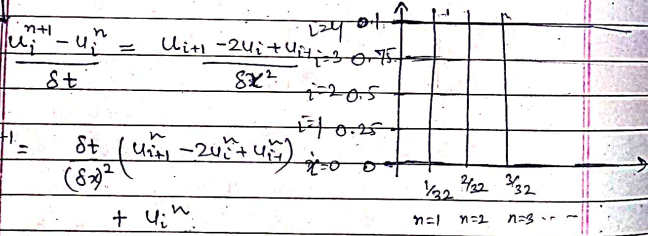 u_i^{n+1} - u_i^n / δt = u_{i+1} - 2u_i + u_{i-1} / δx²
-1 = δt / (δx)² (u_{i+1}^n - 2u_i^n + u_{i-1}^n)
+ u_i^n
i=4 0.1
i=3 0.75
i=2 0.5
i=1 0.25
i=0 0
1/32 2/32 3/32
n=1 n=2 n=3 ...